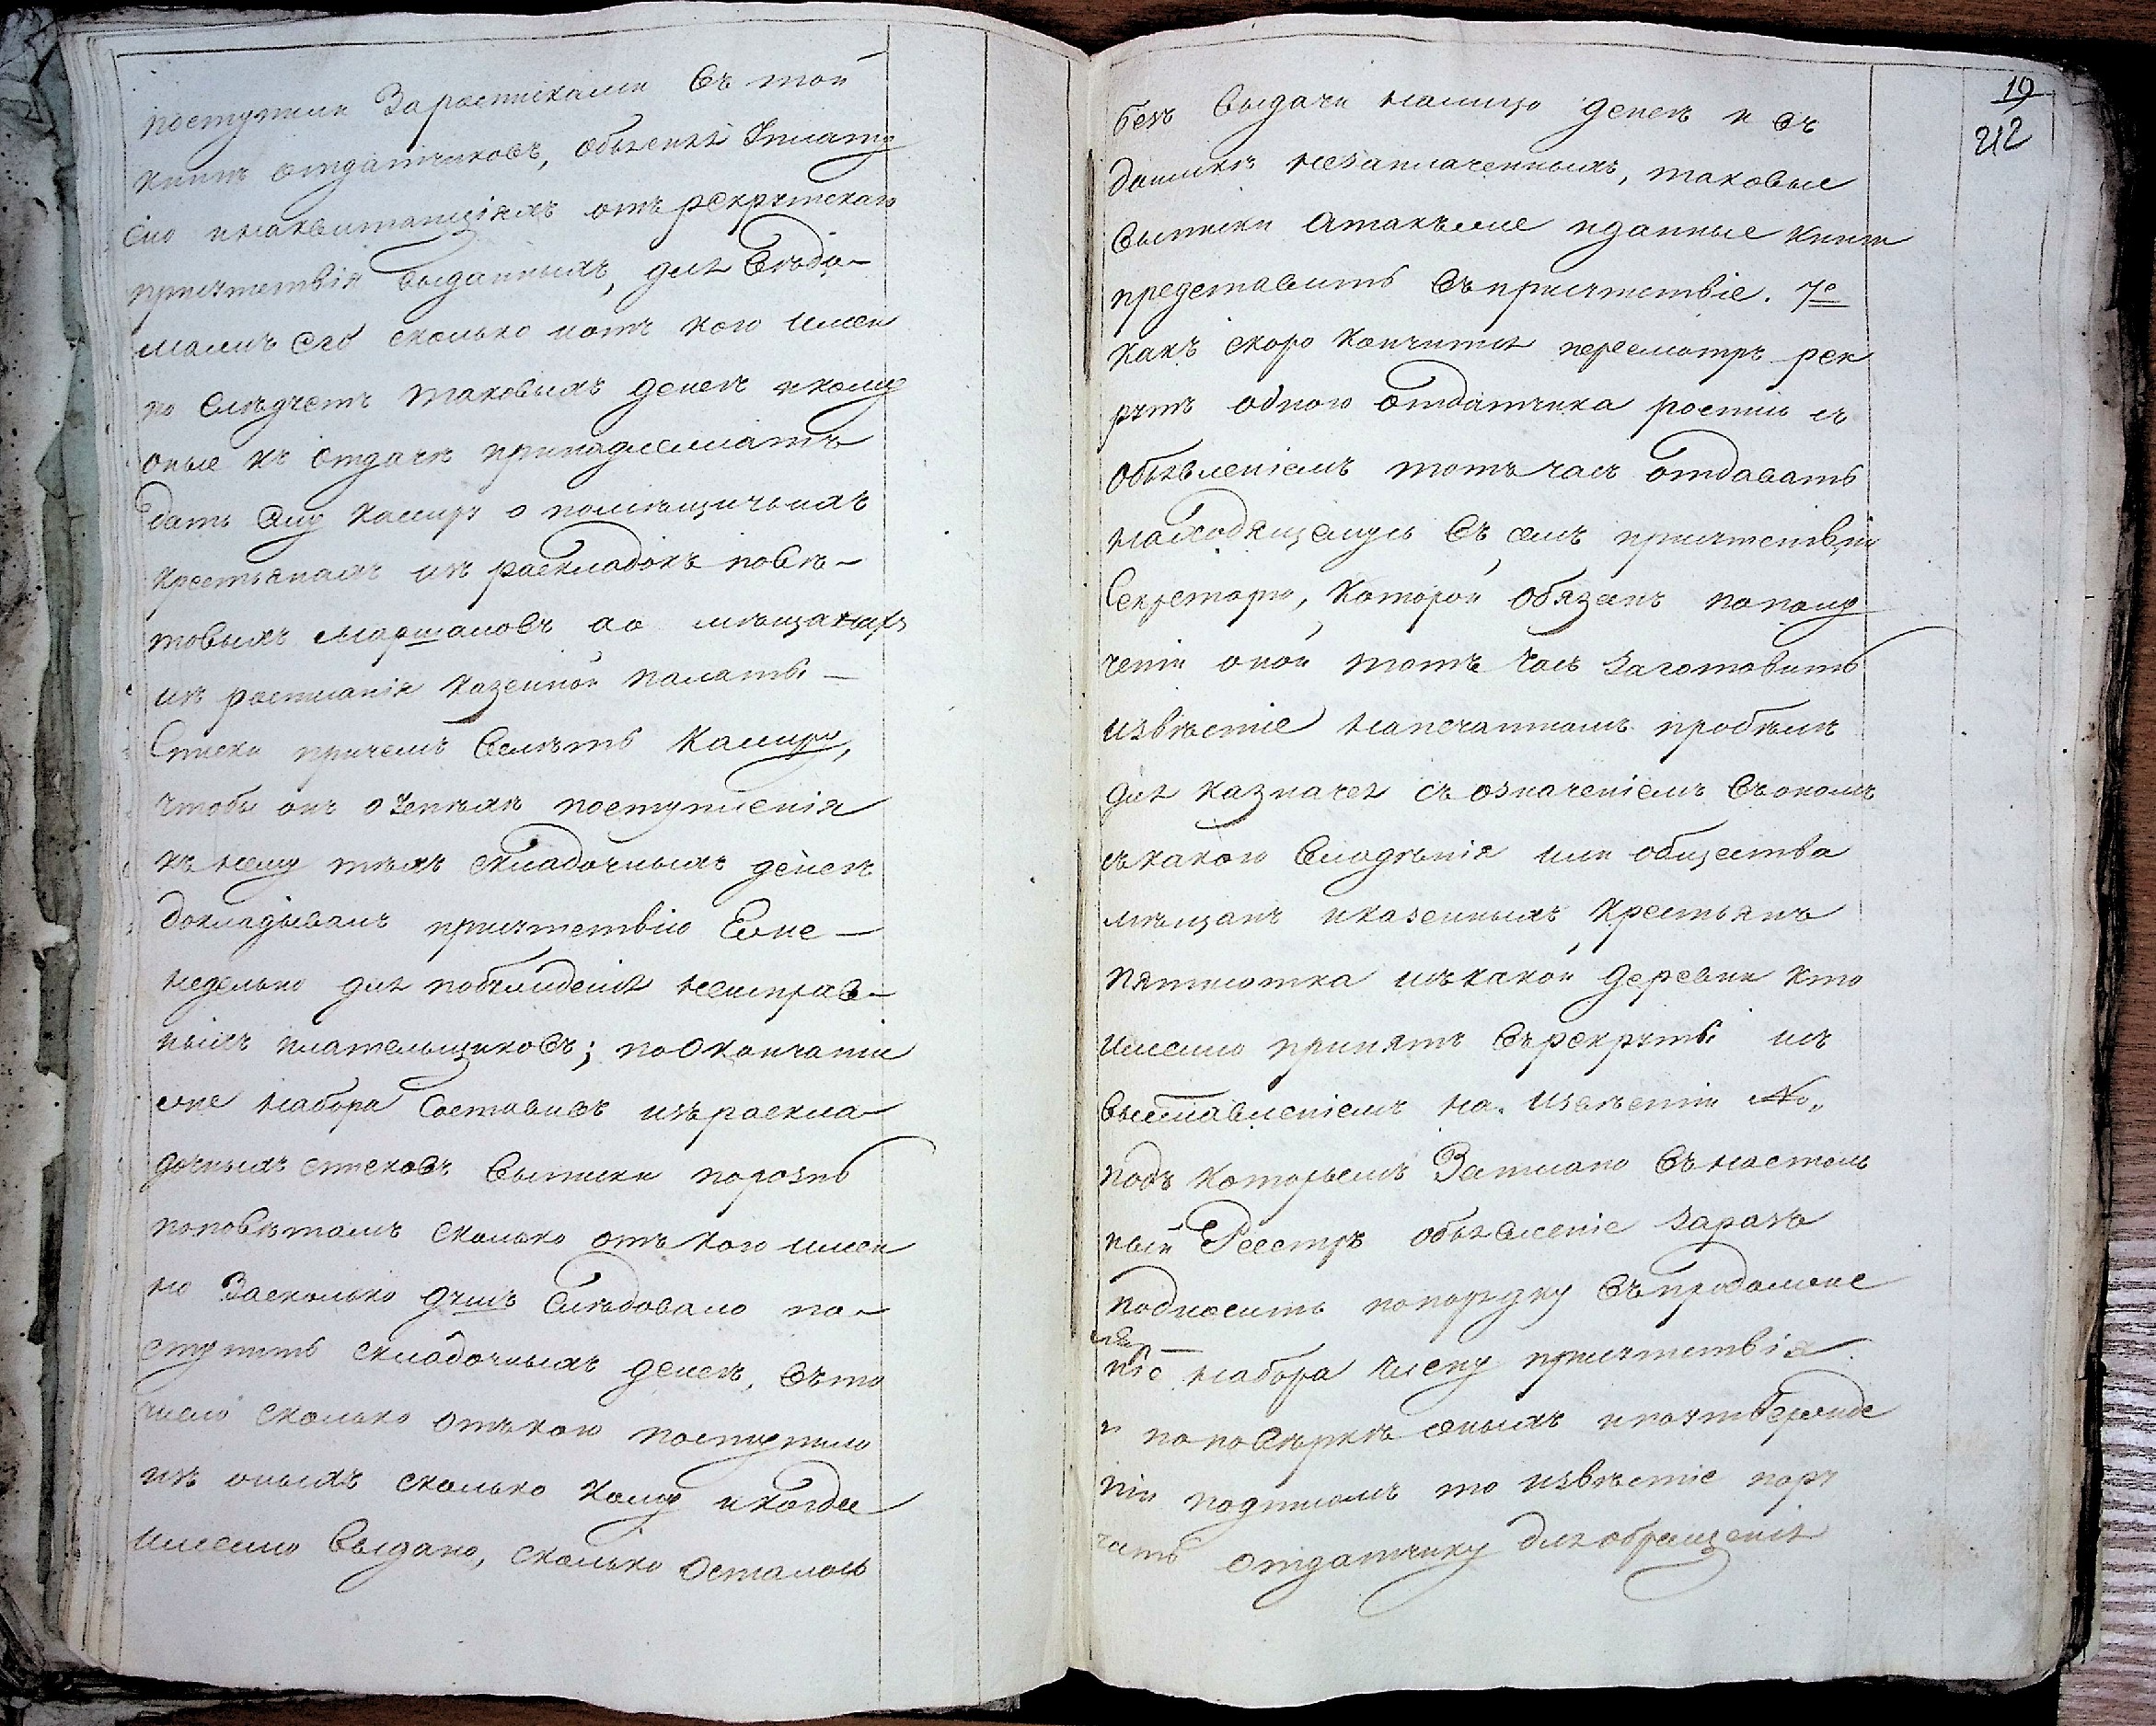 поступили За росписками Въ той
книгѣ отдатчиковъ, объявить Уплату
сію накъвитанціяхъ отъ рекрутскаго
присутствія Выданныхъ, для Свѣде-
маго сколько иотъ кого имен
но Слѣдуетъ таковыхъ денегъ икому
оные къ отдачѣ принадлежатъ
дать ему Касиру о помѣщичьихъ
крестьянахъ изъ раскладокъ повѣ-
товыхъ маршаловъ ао мѣщанахъ
изъ росписанія казенной палаты —
Списки причемъ Велѣть Касиру,
чтобы онъ о поступленія
къ нему тѣхъ складочныхъ денегъ
докладывалъ присутствію Еже —
недельно для побужденія неисправ-
ныхъ плательщиковъ; поОкончаніи
же набора Составивъ изъраскла-
дочныхъ списковъ Выписки порознь
поповѣтамъ сколько отъ кого имен
но Засколько душъ Слѣдовало по-
ступить складочныхъ денегъ, Въто
число сколько Отъкого поступило
изъ оныхъ сколько кому икогда
именно Выдано, сколько Осталось
19
212
безъ Выдачи налицо денегъ и въ
долгахъ незаплаченныхъ, таковые
Выписки Атакъже иданные книги
представить Въприсутствіе. 7е
какъ скоро кончится пересмотръ рек
рутъ одного Отдатчика роспись съ
Объявленіемъ тотъ часъ отдавать
находящемуся Въ семъ присутствіи
Секретарю, которой обязанъ пополу
ченіи оной тотъ часъ заготовить
извѣстіе напечатномъ пробѣлѣ
для казначея съ означеніемъ Въономъ
съкакого Владѣнія или общества
мѣщанъ иказенныхъ крестьянъ
пятисотка изъкакой деревни кто
именно принятъ Върекруты изъ
выставленіемъ на извѣстіи №,,
подъ которымъ Записано Въ настоль
ный Реестръ объявленіе заразъ
подносить попорядку Въпродолже
ніе набора члену присутствія
и поповѣркѣ оныхъ иподтвержде
ніи подписомъ то извѣстіе пору
чать отдатчику для обращенія